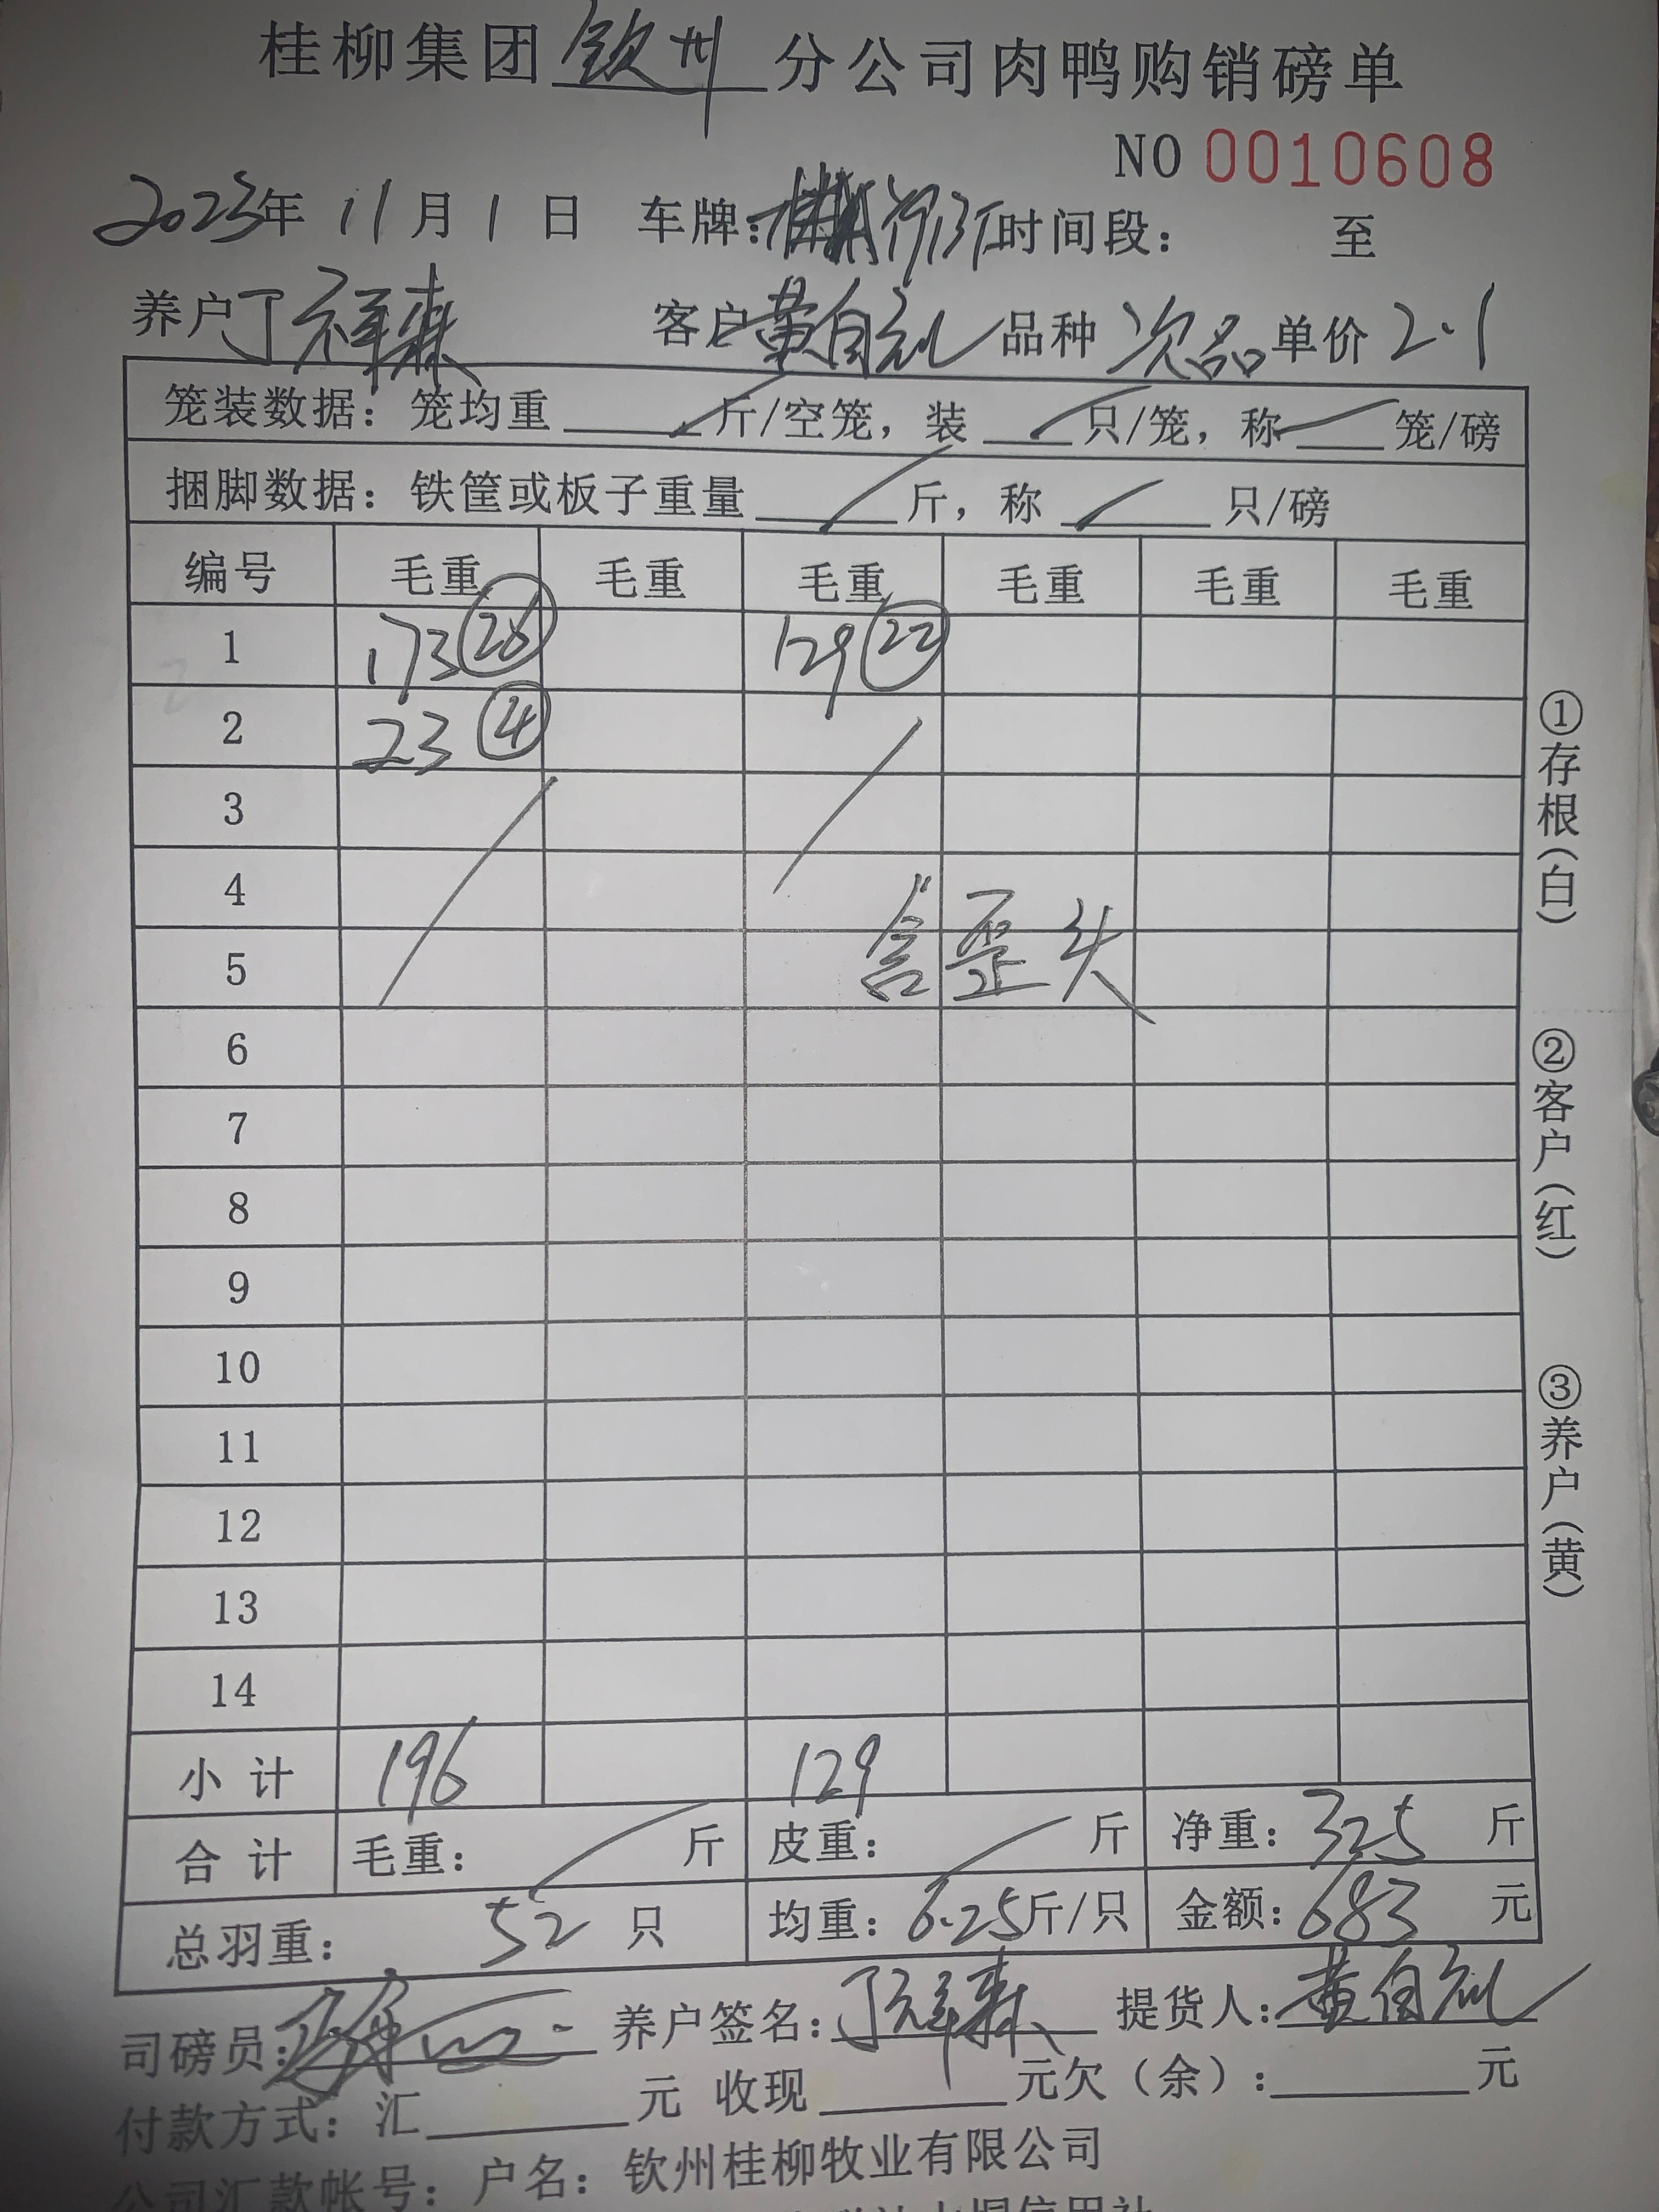 桂柳集团 钦州 分公司肉鸭购销磅单
NO 0010608
2023年 11月 1日 车牌: 时间段: 至
养户 丁祥森 客户 黄自礼 品种 次品 单价 2.1
笼装数据: 笼均重 斤/空笼, 装 只/笼, 称 笼/磅
捆脚数据: 铁筐或板子重量 斤, 称 只/磅
编号 毛重 毛重 毛重 毛重 毛重 毛重
1 173 ㉖ 129 ㉒
2 23 ④
3
4
5 含歪头
6
7
8
9
10
11
12
13
14
小计 196 129
合计 毛重: 斤 皮重: 斤 净重: 325 斤
总羽重: 52 只 均重: 6.25 斤/只 金额: 683 元
司磅员: 养户签名: 丁祥森 提货人: 黄自礼
付款方式: 汇 元 收现 元欠(余): 元
公司汇款帐号: 户名: 钦州桂柳牧业有限公司
①存根(白)
②客户(红)
③养户(黄)